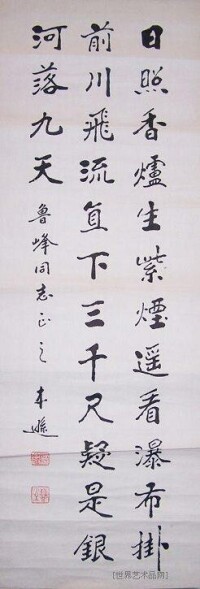 日照香爐生紫煙遥看瀑布掛
前川飛流直下三千尺疑是銀
河落九天
鲁峰同志正之
[世界艺术品网]